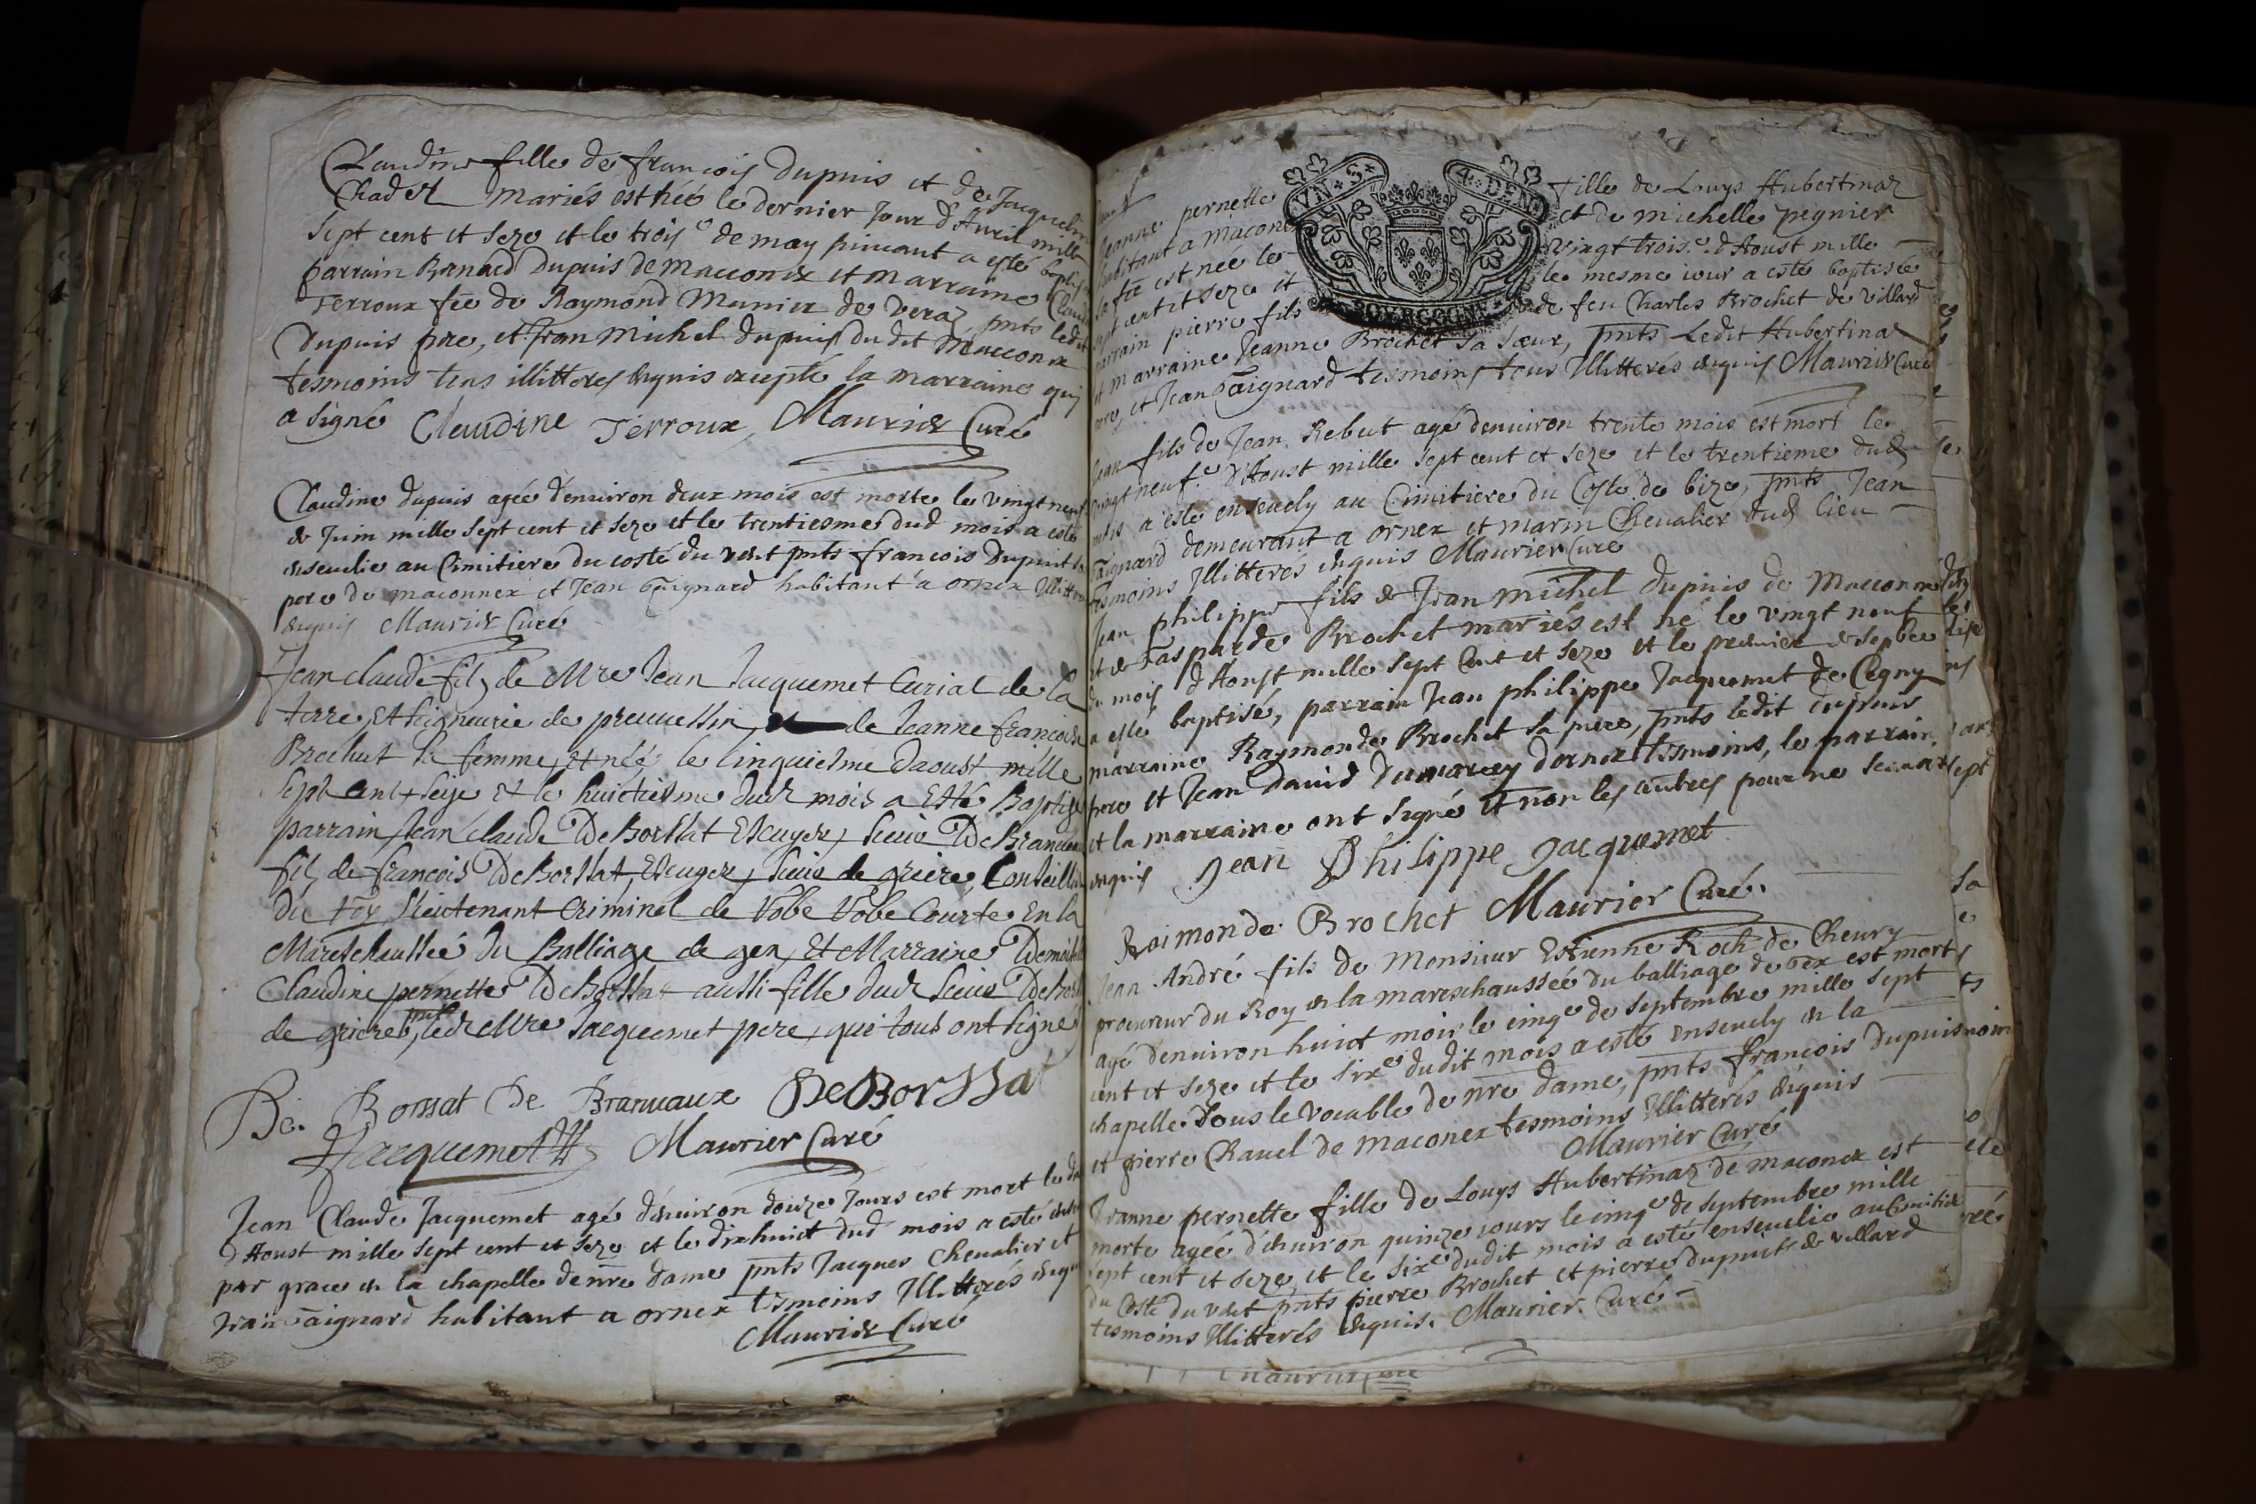 Claudine fille de françois Dupuis et de Jacqueline
Mariés est née le dernier Jour d'Avril mille
Sept cent et seze et le trois.e de may suivant a esté baptis
parrain Dupuis de Macconex et Marraine Claud
Terroux fe de Raymond Munier de veraz, pnts ledit
Dupuis pere, et Jean Michel dupuis du dit Macconex
tesmoins tous illitteres enquis excepté la marraine qui
a signé Claudine Terroux Maurier Curé
Claudine dupuis agée d'enuiron deux mois est morte le vingt neuf
de Juin mille sept cent et seze et le trentiesme dud mois a esté
enseuelie au Cimitiere du costé du vent pnts francois Dupuis
pere de maconnex et Jean Gaignard habitant a ornex Illitt
enquis Maurier Curé
Jean claude filz de Mre Jean Jacquemet Curial de la
terre et seigneurie de preuuessin de Jeanne francoise
Brochut sa femme, et néé le cinquiesme daoust mille
sept cent seize et le huictiesme dud mois a Esté Baptizé
parrain Jean claude De Borssat Escuyer, sieur De
filz de francois De Borssat, Escuyer, sieur de grieres, Conseiller
Du Roy Lieutenant Criminel de Robe Courte En la
Mareschaussée du Balliage de gex, Et Marraine Demois
Claudine pernette De Borssat aussi fille dud sieur De
de grieres, pnts ledt Mre Jacquemet pere, qui tous ont signé
De Borssat De Branuaux De Borssat
Jacquemet Maurier Curé
Jean Claude Jacquemet agé d'enuiron douze Jours est mort le
d'Aoust mille sept cent et seze et le dixhuict dud mois a esté
par grace en la chapelle de nre dame pnts Jacques Cheualier et
Jean Gaignard habitant a ornex tesmoins Illitterés
Maurier Curé
UN · S · 4 · DEN ·
BOURGOGNE
Jeanne pernette fille de Louys Hubertinaz
habitant a Maconex et de michelle pegnier
sa fe est nee le vingt trois.e d'Aoust mille
sept cent et seze et le mesme iour a esté baptisée
parrain pierre fils de feu Charles Brochet de villard
et marraine Jeanne Brochet sa sœur, pnts Ledit Hubertinaz
pere, et Jean Gaignard tesmoins tous Illitterés enquis Maurier Curé
Jean fils de Jean Rebut agé denuiron trente mois est mort le
vingt neuf.e d'Aoust mille sept cent et seze et le trentieme dud
mois a esté enseuely au Cimitiere du Coste de bize, pnts Jean
Gaignard demeurant a ornex et marin Cheualier dud lieu
tesmoins Illitterés enquis Maurier Curé
Jean philippe fils de Jean michel dupuis de Macconnex
et de Gasparde Brochet mariés est né le vingt neuf
du mois d'Aoust mille sept Cent et seze et le premier de sepbre
a esté baptisé, parrain Jean philippe Jacquemet de Cegny
marraine Raymonde Brochet pnts ledit dupuis
pere et Jean David Dumarcey dornex tesmoins, le parrain
et la marraine ont signé et non les autres pour ne scauoir
enquis Jean Philippe Jacquemet
Raimonde Brochet Maurier Curé.
Jean André fils de Monsieur Estienne Roch de Cheury
procureur du Roy en la mareschaussée du balliage de Gex est mort
agé denuiron huict mois le cinq.e de septembre mille sept
cent et seze et le six.e dudit mois a esté enseuely en la
chapelle sous le vocable de nre dame, pnts françois Dupuis
et pierre Chauel de maconex tesmoins Illitterés enquis
Maurier Curé
Jeanne pernette fille de Louys Hubertinaz de maconex est
morte agée d'enuiron quinze iours le cinq.e de septembre mille
sept cent et seze, et le six.e dudit mois a esté enseuelie au Cimitiere
du Costé du vent pnts pierre Brochet et pierre dupuis de villard
tesmoins Illitterés enquis. Maurier Curé